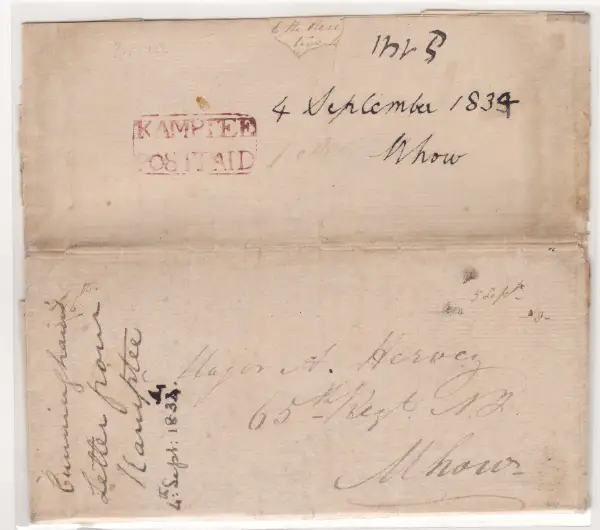 4 September 1834
Mhow
KAMPTEE
POST PAID
Cunningham's
Letter from
Kamptee
4th Sept: 1834.
5 Sept
Major A. Hervey
65th Regt. N.I.
Mhow